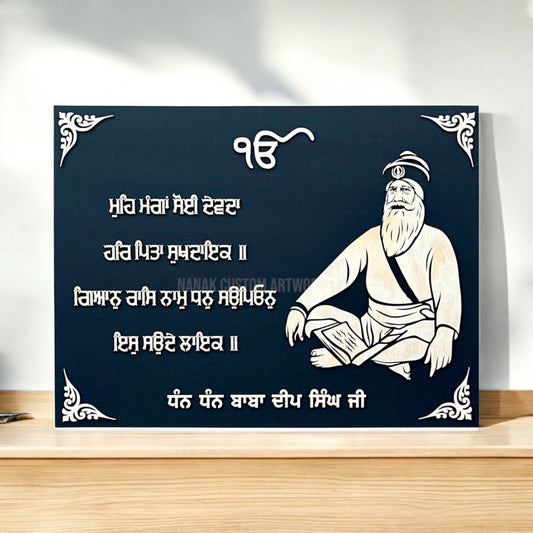 ੴ
ਮੁਹਿ ਮੰਗਾਂ ਸੋਈ ਦੇਵਦਾ
ਹਰਿ ਪਿਤਾ ਸੁਖਦਾਇਕ ॥
NANAK CUSTOM ARTWORK
ਗਿਆਨੁ ਰਾਸਿ ਨਾਮੁ ਧਨੁ ਸਉਪਿਓਨੁ
ਇਸੁ ਸਉਦੇ ਲਾਇਕ ॥
ਧੰਨ ਧੰਨ ਬਾਬਾ ਦੀਪ ਸਿੰਘ ਜੀ